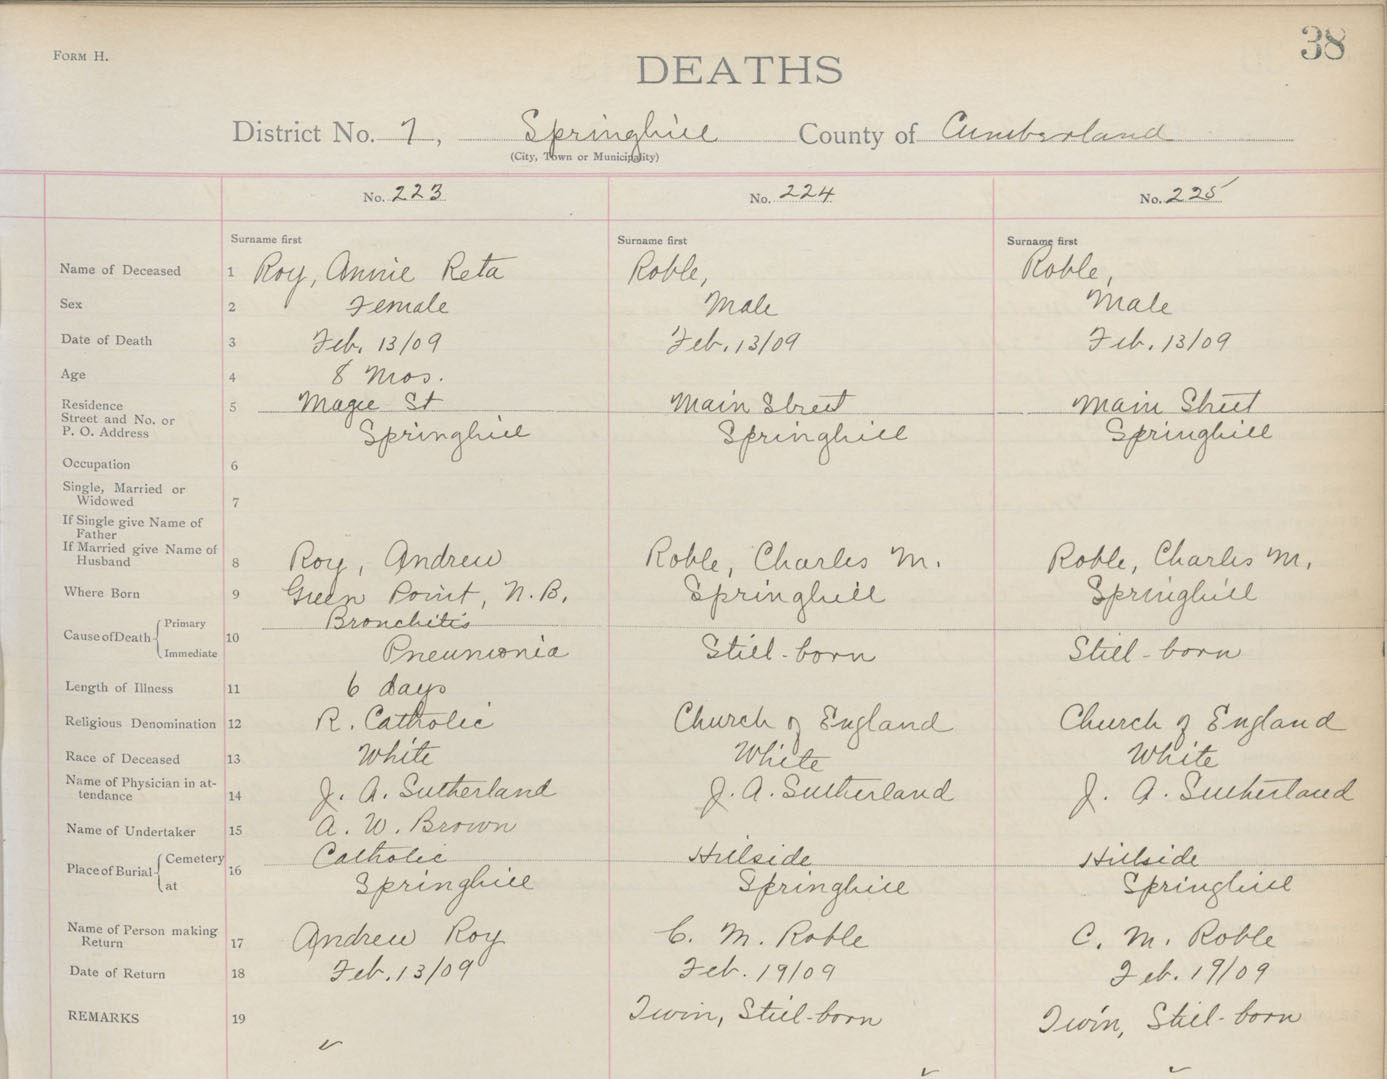 38
FORM H.
DEATHS
District No. 7, Springhill County of Cumberland
(City, Town or Municipality)
No. 223 No. 224 No. 225
Surname first Surname first Surname first
Name of Deceased 1 Roy, Annie Reta Roble, Roble,
Sex 2 Female Male Male
Date of Death 3 Feb. 13/09 Feb. 13/09 Feb. 13/09
Age 4 8 Mos.
Residence 5 Magee St Main Street Main Street
Street and No. or
P. O. Address Springhill Springhill Springhill
Occupation 6
Single, Married or
Widowed 7
If Single give Name of
Father
If Married give Name of
Husband 8 Roy, Andrew Roble, Charles M. Roble, Charles M.
Where Born 9 Green Point, N.B. Springhill Springhill
Cause of Death Primary 10 Bronchitis
Immediate Pneumonia Still-born Still-born
Length of Illness 11 6 days
Religious Denomination 12 R. Catholic Church of England Church of England
Race of Deceased 13 White White White
Name of Physician in at-
tendance 14 J. A. Sutherland J. A. Sutherland J. A. Sutherland
Name of Undertaker 15 A. W. Brown
Place of Burial Cemetery 16 Catholic Hillside Hillside
at Springhill Springhill Springhill
Name of Person making
Return 17 Andrew Roy C. M. Roble C. M. Roble
Date of Return 18 Feb. 13/09 Feb. 19/09 Feb. 19/09
REMARKS 19 Twin, Still-born Twin, Still-born